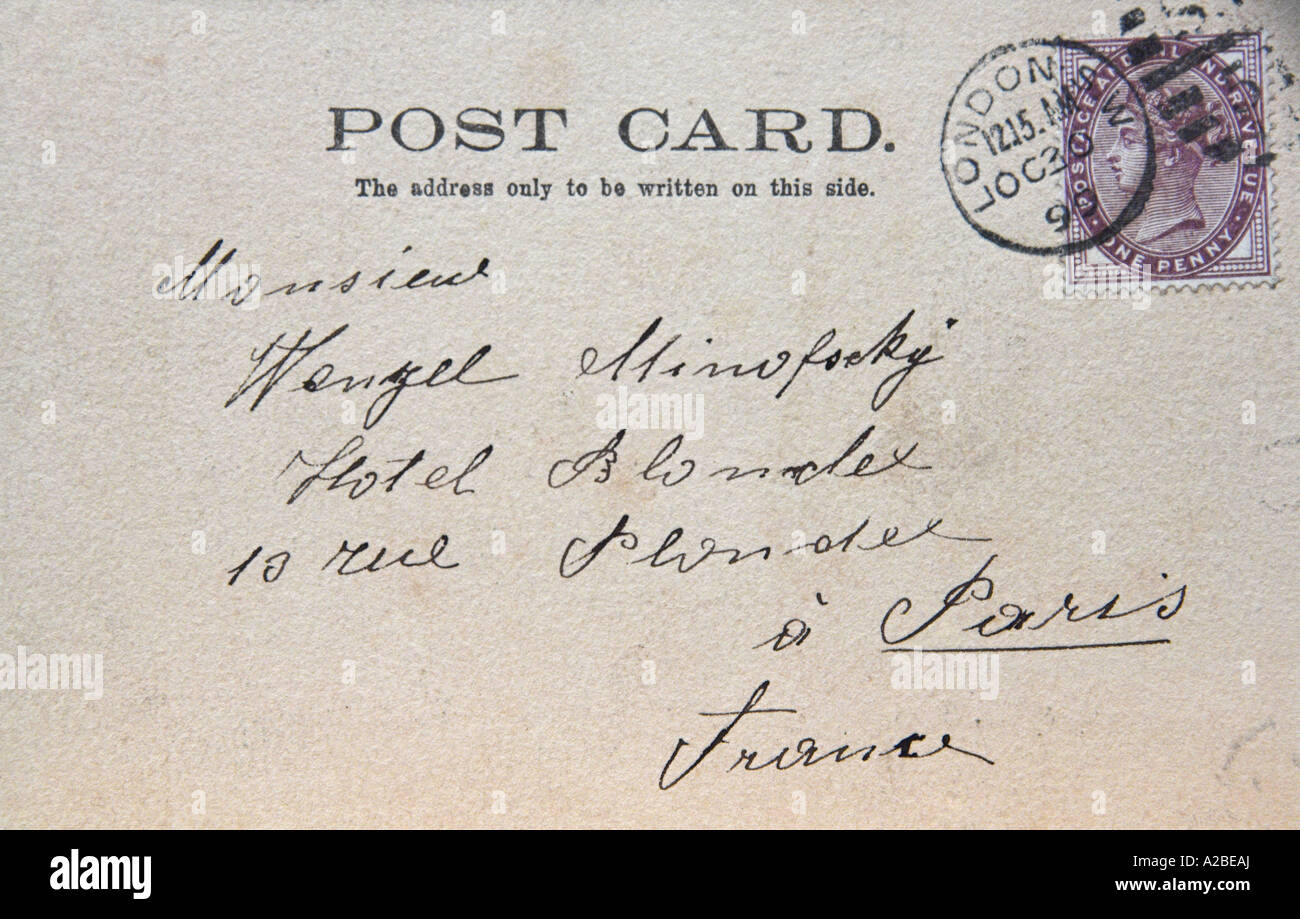 POST CARD.
The address only to be written on this side.
LONDON W
12.15. AM
OC 30
99
POSTAGE AND INLAND REVENUE
ONE PENNY
Monsieur
Wenzel Minofsský
Hotel Blondel
13 rue Blondel
à Paris
France
alamy
alamy
Image ID: A2BEAJ
www.alamy.com